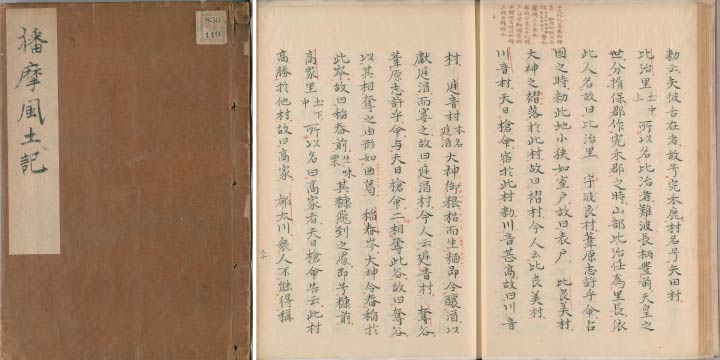 播摩風土記
830
119
勅云矢彼古在者故号宍禾鹿村名号矢田村
比治里土中上所以名比治者難波長柄豊前天皇之
世分揖保郡作宍禾郡之時山部比治任為里長依
此人名故曰比治里 宇波良村葦原志許乎命占
国之時勅此地小狭如室戸故曰表戸 比良美村
大神之褶落於此村故曰褶村今人云比良美村
川音村天日槍命宿於此村勅川音甚高故曰川音
村 庭音村本名庭酒大神御粮枯而生糆即令醸酒以
献庭酒而宴之故曰庭酒村今人云庭音村 奪谷
葦原志許乎命与天日槍命二相奪此谷故曰奪谷
以其相奪之由形如曲葛 稲舂岑大神令舂稲於
此岑故曰稲舂前生味栗其糠飛到之處即号糠前
高家里土下中所以名曰高家者天日槍命告云此村
高勝於他村故曰高家 都太川衆人不能得稱